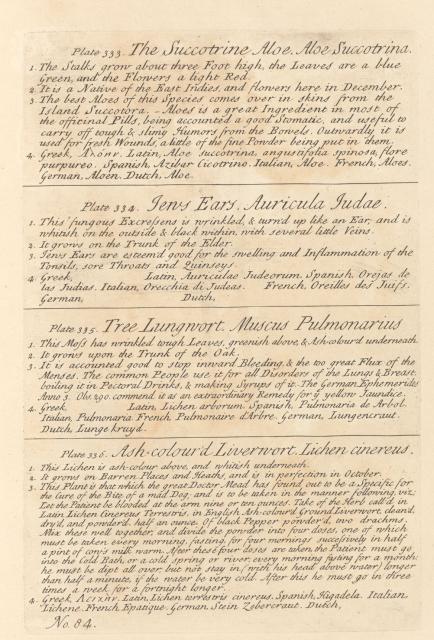 Plate 333. The Succotrine Aloe. Aloe Succotrina.
1. The Stalks grow about three Foot high, the Leaves are a blue
Green, and the Flowers a light Red.
2. It is a Native of the East Indies, and flowers here in December.
3. The best Aloes of this Species comes over in skins from the
Island Succotora. – Aloes is a great Ingredient in most of
the officinal Pills, being accounted a good Stomatic, and useful to
carry off tough & slimy Humors from the Bowels. Outwardly it is
used for fresh Wounds, a little of the fine Powder being put in them.
4. Greek, Latin, Aloe succotrina, angustifolia spinosa, flore
purpureo. Spanish, Azibar Cicotrino. Italian, Aloe. French, Aloes.
German, Aloen. Dutch, Aloe.
Plate 334. Jews Ears. Auricula Judae.
1. This fungous Excresens is wrinkled, & turn'd up like an Ear; and is
whitish on the outside & black within, with several little Veins.
2. It grows on the Trunk of the Elder.
3. Jews Ears are esteem'd good for the swelling and Inflammation of the
Tonsils, sore Throats and Quinseys.
4. Greek, Latin, Auriculae Judeorum. Spanish, Orejas de
las Judias. Italian, Orecchia di Judeas. French, Oreilles des Juifs.
German, Dutch,
Plate 335. Tree Lungwort. Muscus Pulmonarius
1. This Moss has wrinkled tough Leaves, greenish above, & Ash-colour'd underneath.
2. It grows upon the Trunk of the Oak.
3. It is accounted good to stop inward Bleeding, & the too great Flux of the
Menses. The common People use it for all Disorders of the Lungs & Breast,
boiling it in Pectoral Drinks, & making Syrups of it. The German Ephemerides
Anno 3. Obs. 290. commend it as an extraordinary Remedy for ye yellow Jaundice.
4. Greek, Latin, Lichen arborum. Spanish, Pulmonaria de Arbol.
Italian, Pulmonaria. French, Pulmonaire d'Arbre. German, Lungencraut.
Dutch, Lunge kruyd.
Plate 336. Ash-colour'd Liverwort. Lichen cinereus.
1. This Lichen is ash-colour above, and whitish underneath.
2. It grows on Barren Places and Heaths, and is in perfection in October.
3. This Plant is that which the great Doctor Mead has found out to be a Specific for
the Cure of the Bite of a mad Dog; and is to be taken in the manner following, viz.
Let the Patient be blooded at the arm nine or ten ounces. Take of the Herb call'd in
Latin Lichen Cinereus Terrestris, in English Ash-colour'd Ground Liverwort, clean'd,
dry'd, and powder'd, half an ounce. Of black Pepper powder'd, two drachms.
Mix these well together; and divide the powder into four doses, one of which
must be taken every morning, fasting, for four mornings successively in half
a pint of cow's milk warm. After these four doses are taken the Patient must go
into the Cold Bath, or a cold spring or river, every morning fasting for a month;
he must be dipt all over, but not stay in (with his head above water) longer
than half a minute, if the water be very cold. After this he must go in three
times a week for a fortnight longer.
4. Greek, Latin, Lichen terrestris cinereus. Spanish, Higadela. Italian,
Lichene. French, Epatique. German, Stein Zebercraut. Dutch,
No. 84.